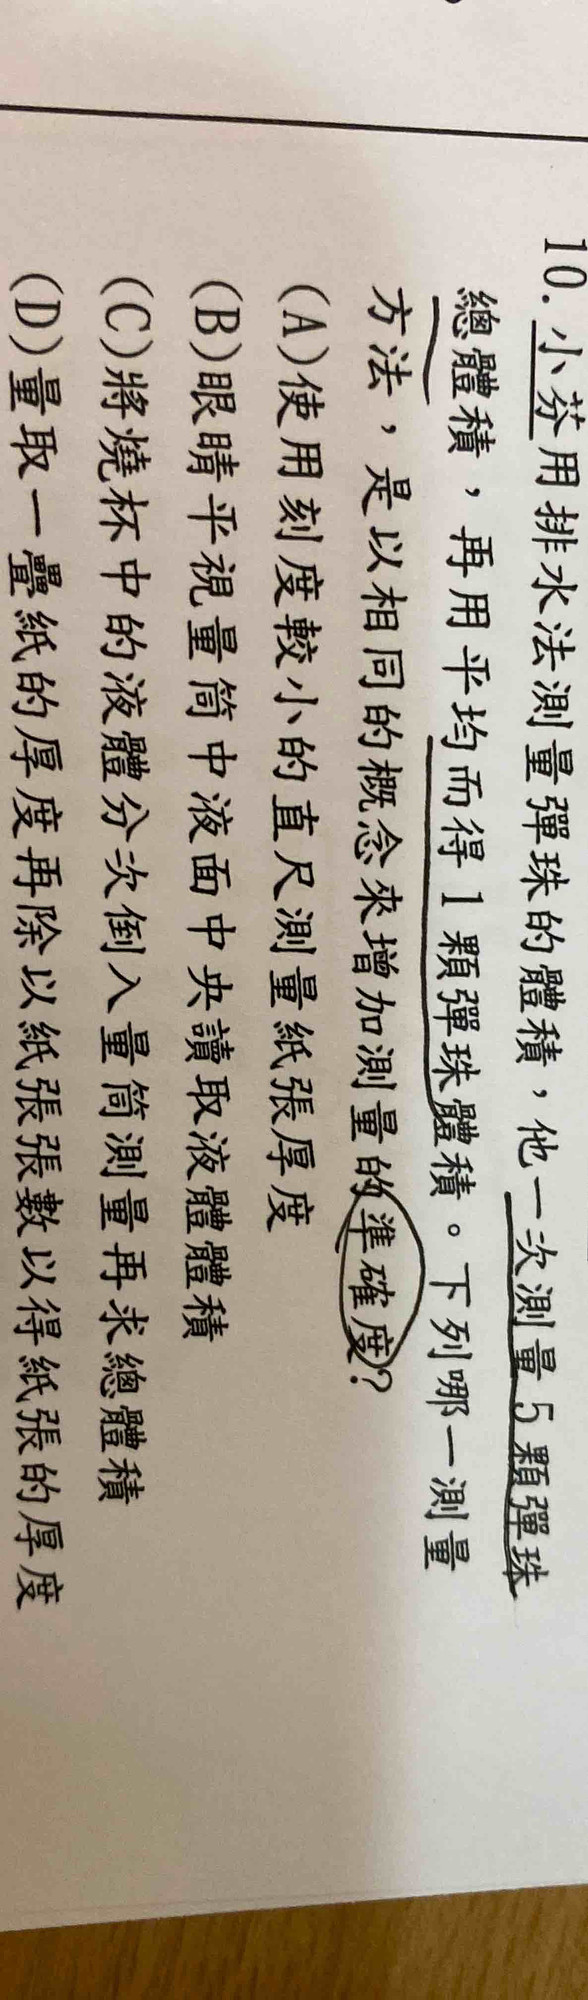 10. 小芬用排水法測量彈珠的體積，他一次測量5顆彈珠
總體積，再用平均而得1顆彈珠體積。下列哪一測量
方法，是以相同的概念來增加測量的準確度?
(A)使用刻度較小的直尺測量紙張厚度
(B)眼睛平視量筒中液面中央讀取液體體積
(C)將燒杯中的液體分次倒入量筒測量再求總體積
(D)量取一疊紙的厚度再除以紙張張數以得紙張的厚度